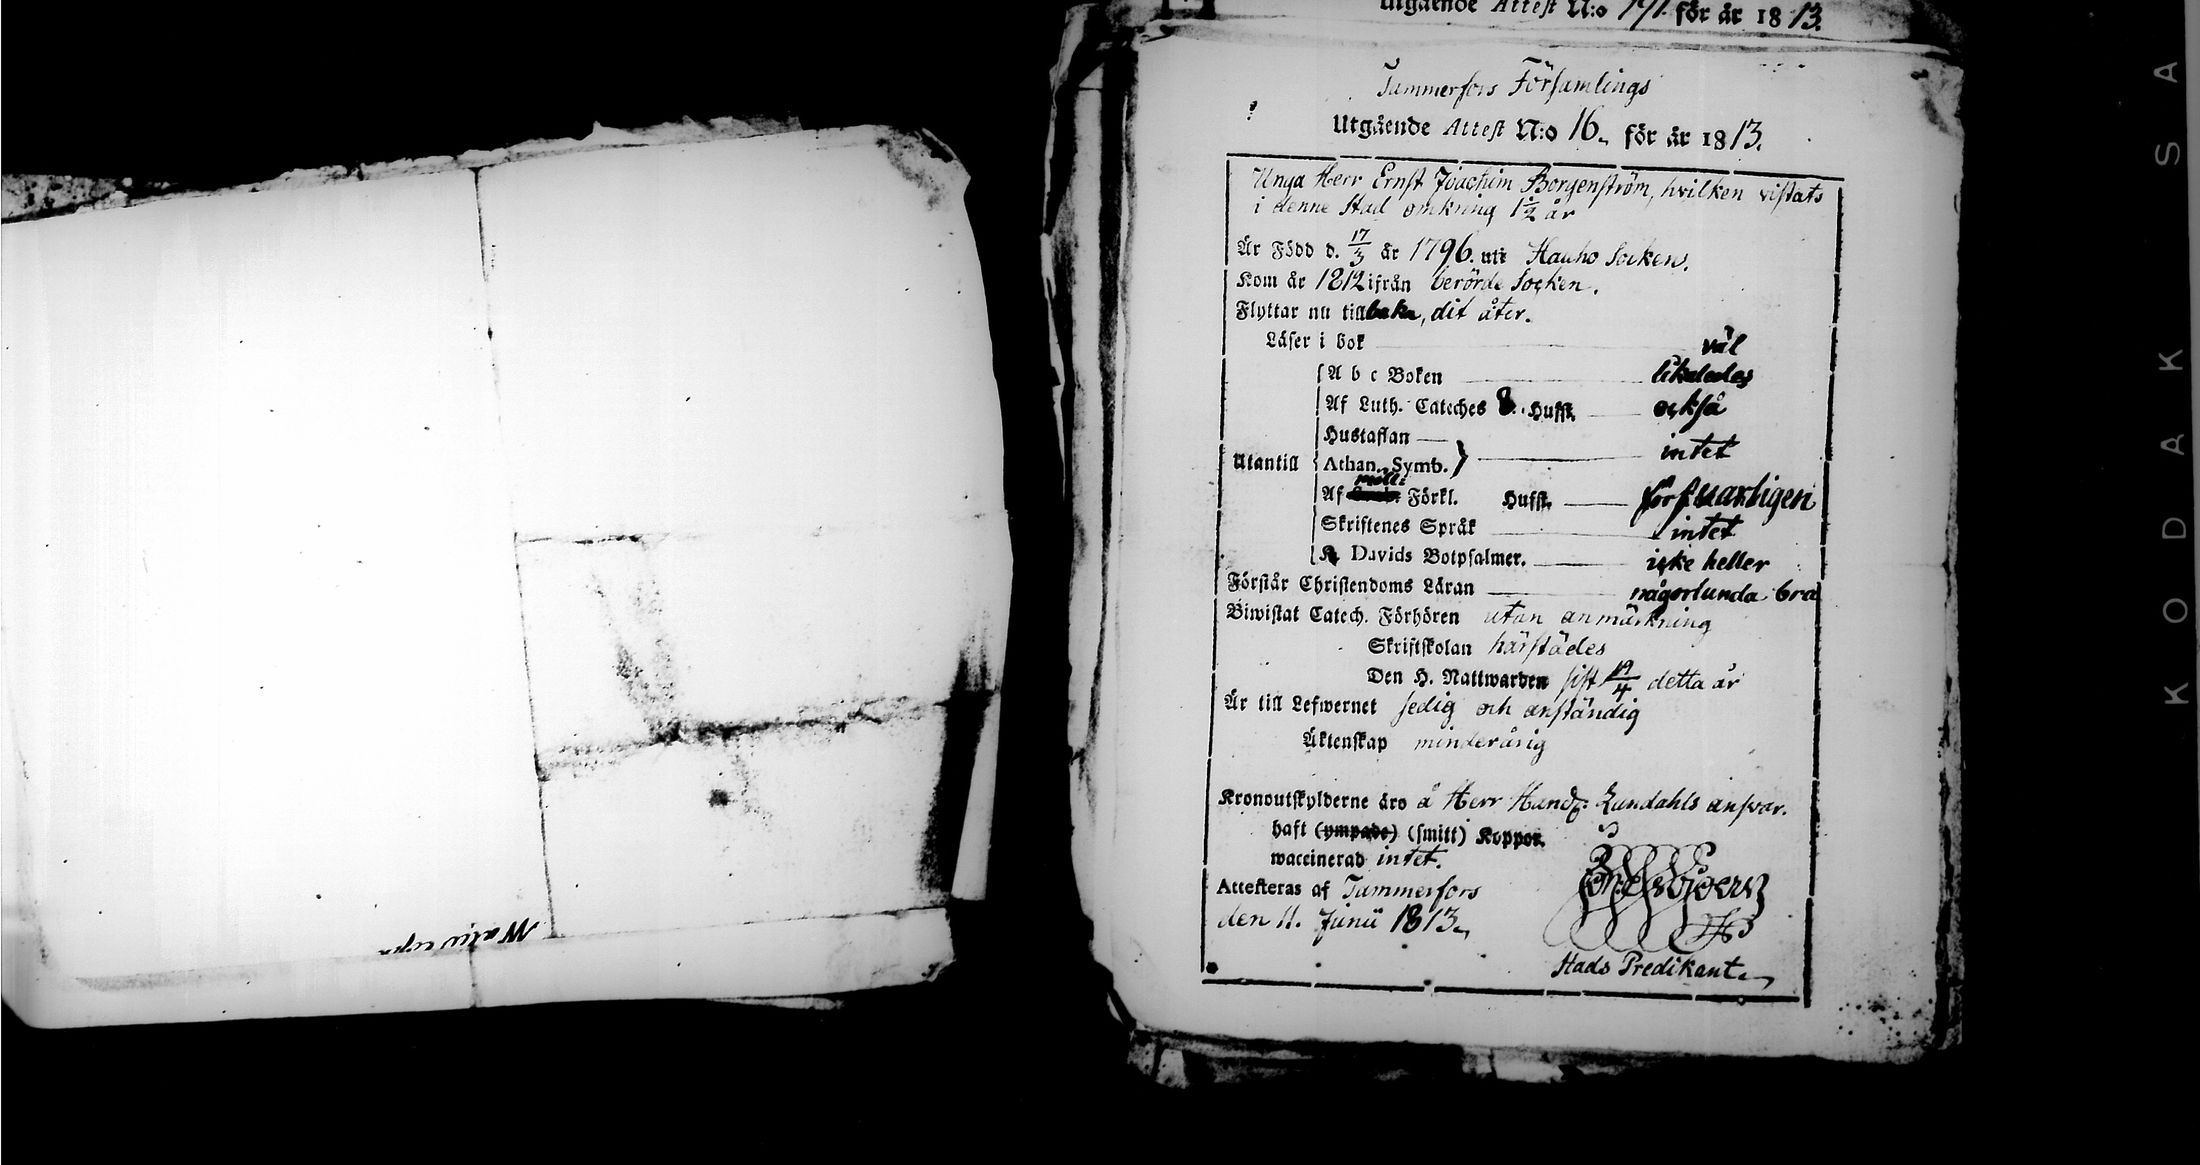 Utgående Attest N:o 191. för år 1813.
Tammerfors Församlings
Utgående Attest N:o 16. för år 1813.
Unga Herr Ernst Joachim Borgenström, hvilken vistats
i denne Stad omkring 1½ år
Är Född d. 17/3 år 1796. uti Hauho Socken.
Kom år 1812 ifrån berörde Socken.
Flyttar nu tillbaka, dit åter.
Läser i bok väl
A b c Boken likaledes
Af Luth. Cateches 8. Hufst. också
Hustaflan
Utantill Athan. Symb. } intet
Af Förkl. Hufst. försvarligen
Skriftenes Språk intet
K. Davids Botpsalmer. icke heller
Förstår Christendoms Läran någorlunda bra
Biwistat Catech. Förhören utan anmärkning
Skriftskolan härstädes
Den H. Nattwarden sist /4 detta år
Är till Lefwernet sedig och anständig
Äktenskap minderårig
Kronoutskylderne äro å Herr Lundahls ansvar.
haft (ympade) (smitt) Koppor.
waccinerad intet.
Attesteras af Tammerfors
den 11. Junii 1813.
Stads Predikant.
KODAK SA